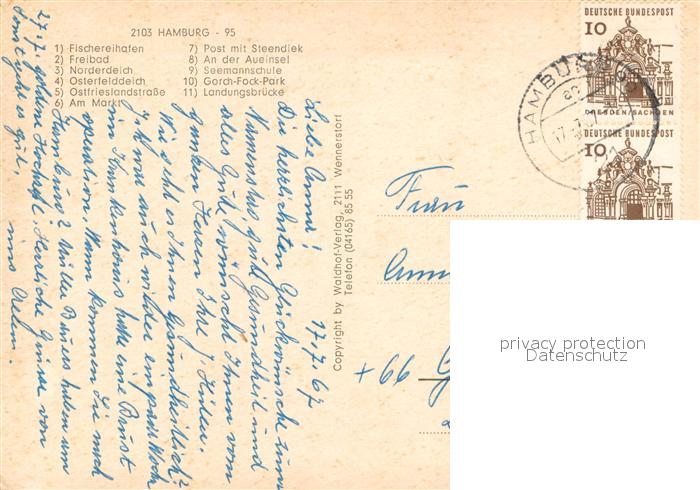 2103 HAMBURG - 95
1) Fischereihafen
2) Freibad
3) Norderdeich
4) Osterfelddeich
5) Ostfrieslandstraße
6) Am Markt
7) Post mit Steendiek
8) An der Aueinsel
9) Seemannschule
10) Gorch-Fock-Park
11) Landungsbrücke
DEUTSCHE BUNDESPOST
10
DRESDEN/SACHSEN
DEUTSCHE BUNDESPOST
10
HAMBURG
Copyright by Waldhof-Verlag, 2111 Wennerstorf
Telefon (04165) 85 55
17.7.67
Liebe Anna!
Die herzlichsten Glückwünsche zum
Namenstag, viel Gesundheit und
alles Gute wünscht Ihnen vom
ganzen Herzen Ihre J.
Wie geht es Ihnen Gesundheitlich?
Ich war auch wieder ein paar Woch
im Krankenhaus hatte eine Brust
operation. Wann kommen Sie mal
Hamburg? Müller Bauers haben am
27.7. goldene Hochzeit. Herzliche Grüße von
sonst geht es gut.
uns allen.
Frau
66
privacy protection
Datenschutz